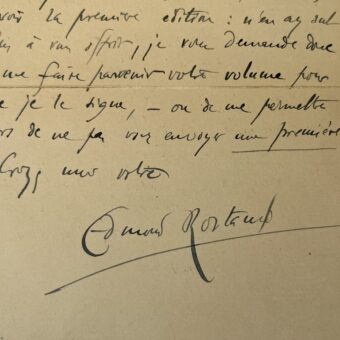 voir la première edition : n'en ay ant
à vous offrir, je vous demande donc
me faire parvenir votre volume pour
e je le signe, – ou de me permettre
rs de ne pas vous envoyer une première
Croyez moi votre
Edmond Rostand